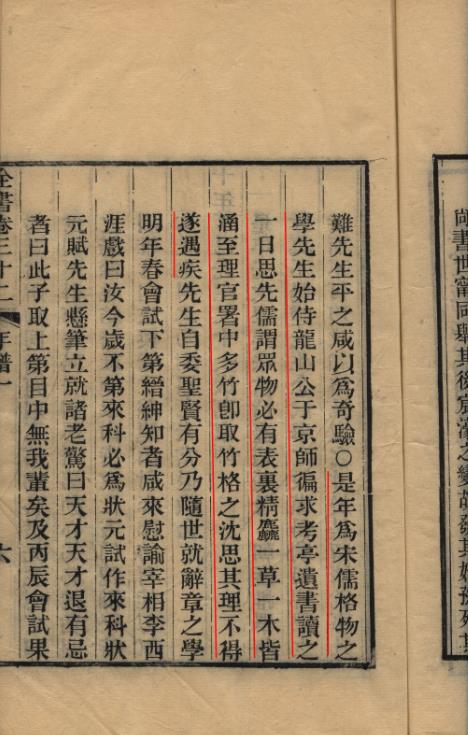 難先生平之咸以爲奇驗〇是年爲宋儒格物之
學先生始侍龍山公于京師徧求考亭遺書讀之
一日思先儒謂眾物必有表裏精麤一草一木皆
涵至理官署中多竹卽取竹格之沈思其理不得
遂遇疾先生自委聖賢有分乃隨世就辭章之學
明年春會試下第縉紳知者咸來慰諭宰相李西
涯戲曰汝今歲不第來科必爲狀元試作來科狀
元賦先生懸筆立就諸老驚曰天才天才退有忌
者曰此子取上第目中無我輩矣及丙辰會試果
全書卷三十二 年譜一 六